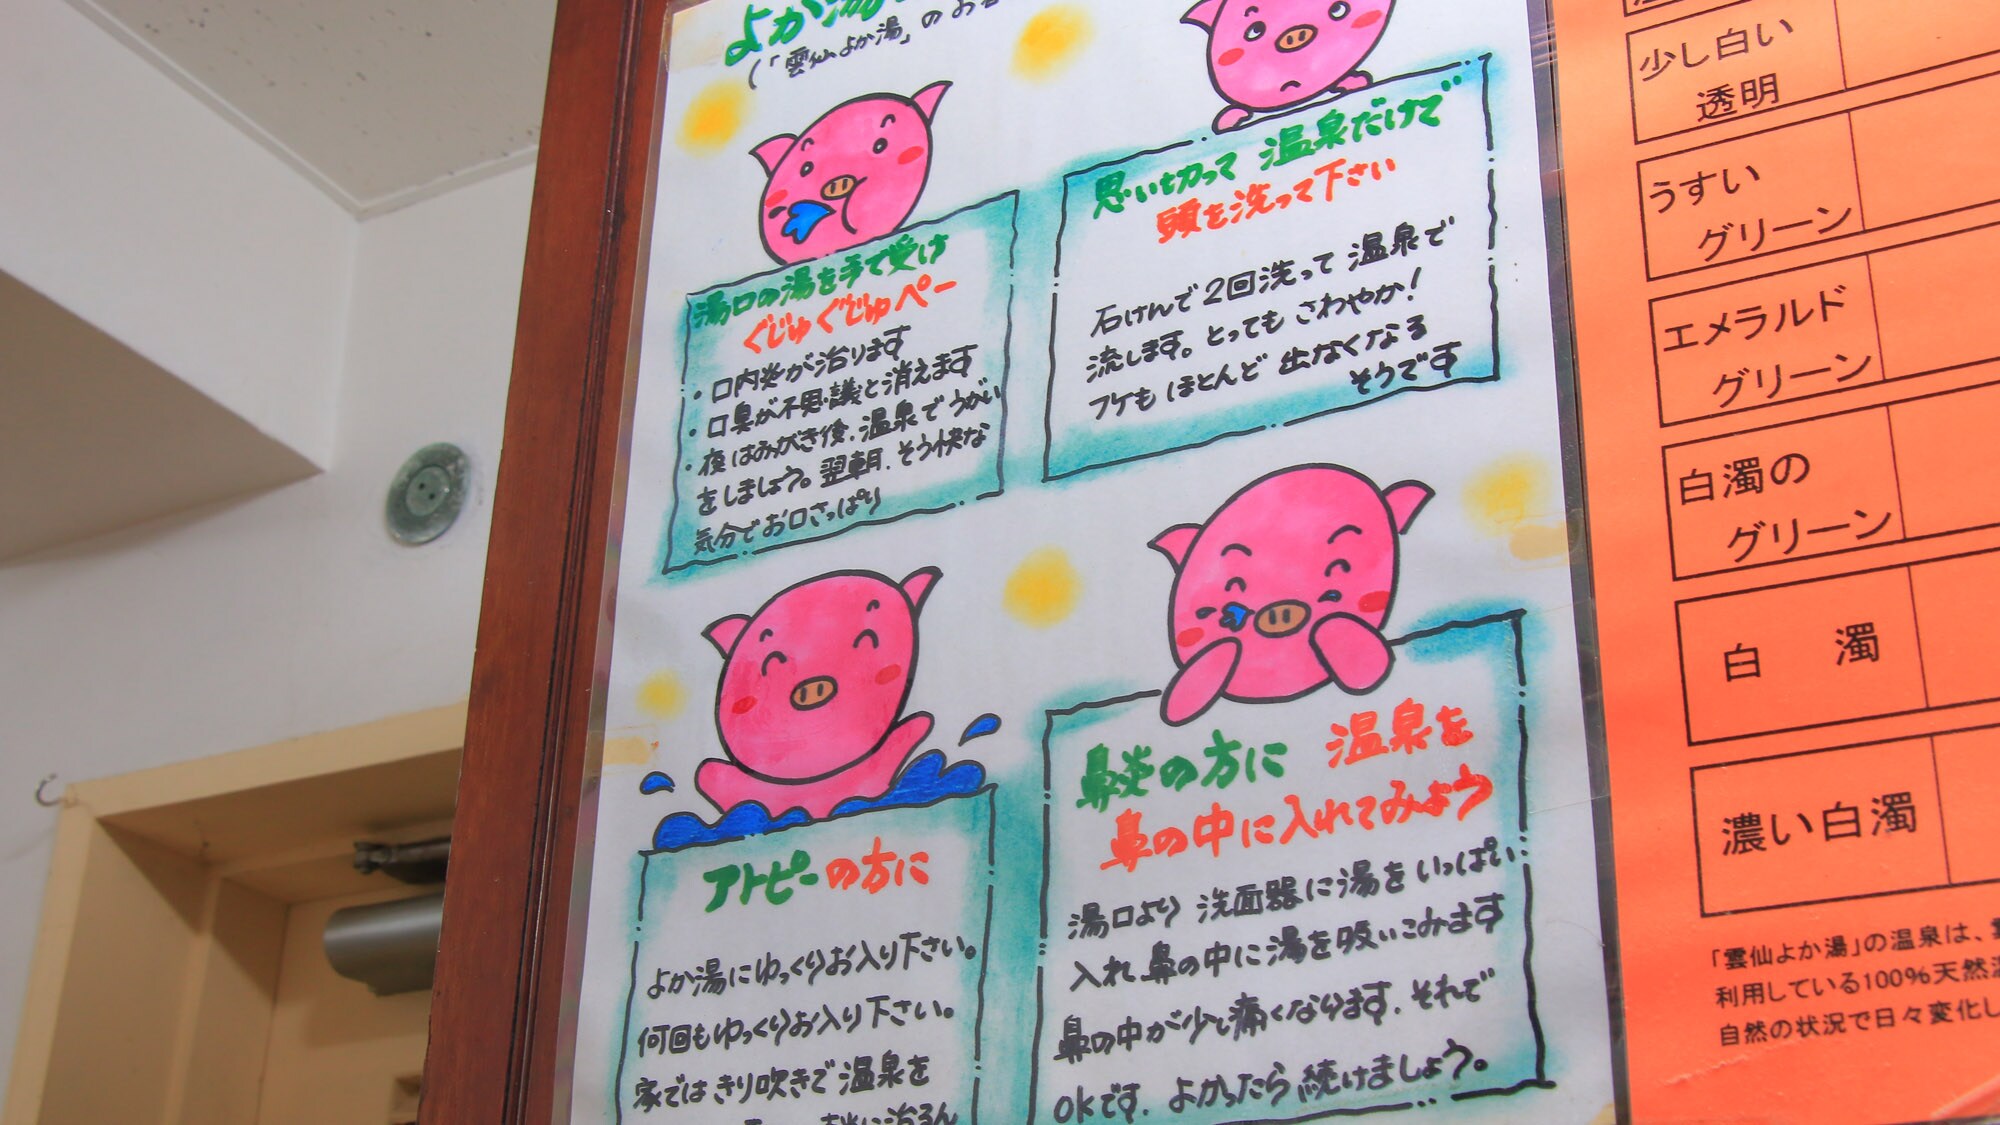 よか湯
(「雲仙よか湯」のお
湯口の湯を手で受け
ぐじゅぐじゅペー
・口内炎が治ります
・口臭が不思議と消えます
・夜はみがき後、温泉でうがい
をしましょう。翌朝、そう快な
気分でお口さっぱり
思い切って 温泉だけで
頭を洗って下さい
石けんで2回洗って 温泉で
流します。とっても さわやか!
フケも ほとんど 出なくなる
そうです
アトピーの方に
よか湯にゆっくりお入り下さい。
何回もゆっくりお入り下さい。
家では きり吹きで 温泉を
に治るん
鼻炎の方に 温泉を
鼻の中に入れてみよう
湯口より 洗面器に湯を いっぱい
入れ 鼻の中に湯を吸いこみます
鼻の中が少し痛くなります。それで
OKです。よかったら 続けましょう。
少し白い
透明
うすい
グリーン
エメラルド
グリーン
白濁の
グリーン
白 濁
濃い白濁
「雲仙よか湯」の温泉は、
利用している100%天然
自然の状況で日々変化し